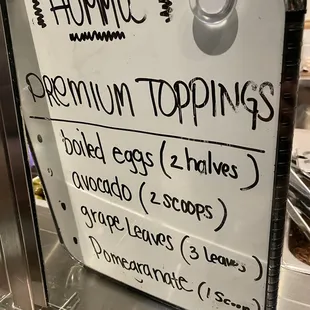 HUMMUS
PREMIUM TOPPINGS
boiled eggs (2 halves)
avocado (2 scoops)
grape Leaves (3 leaves)
Pomegranate (1 scoop)